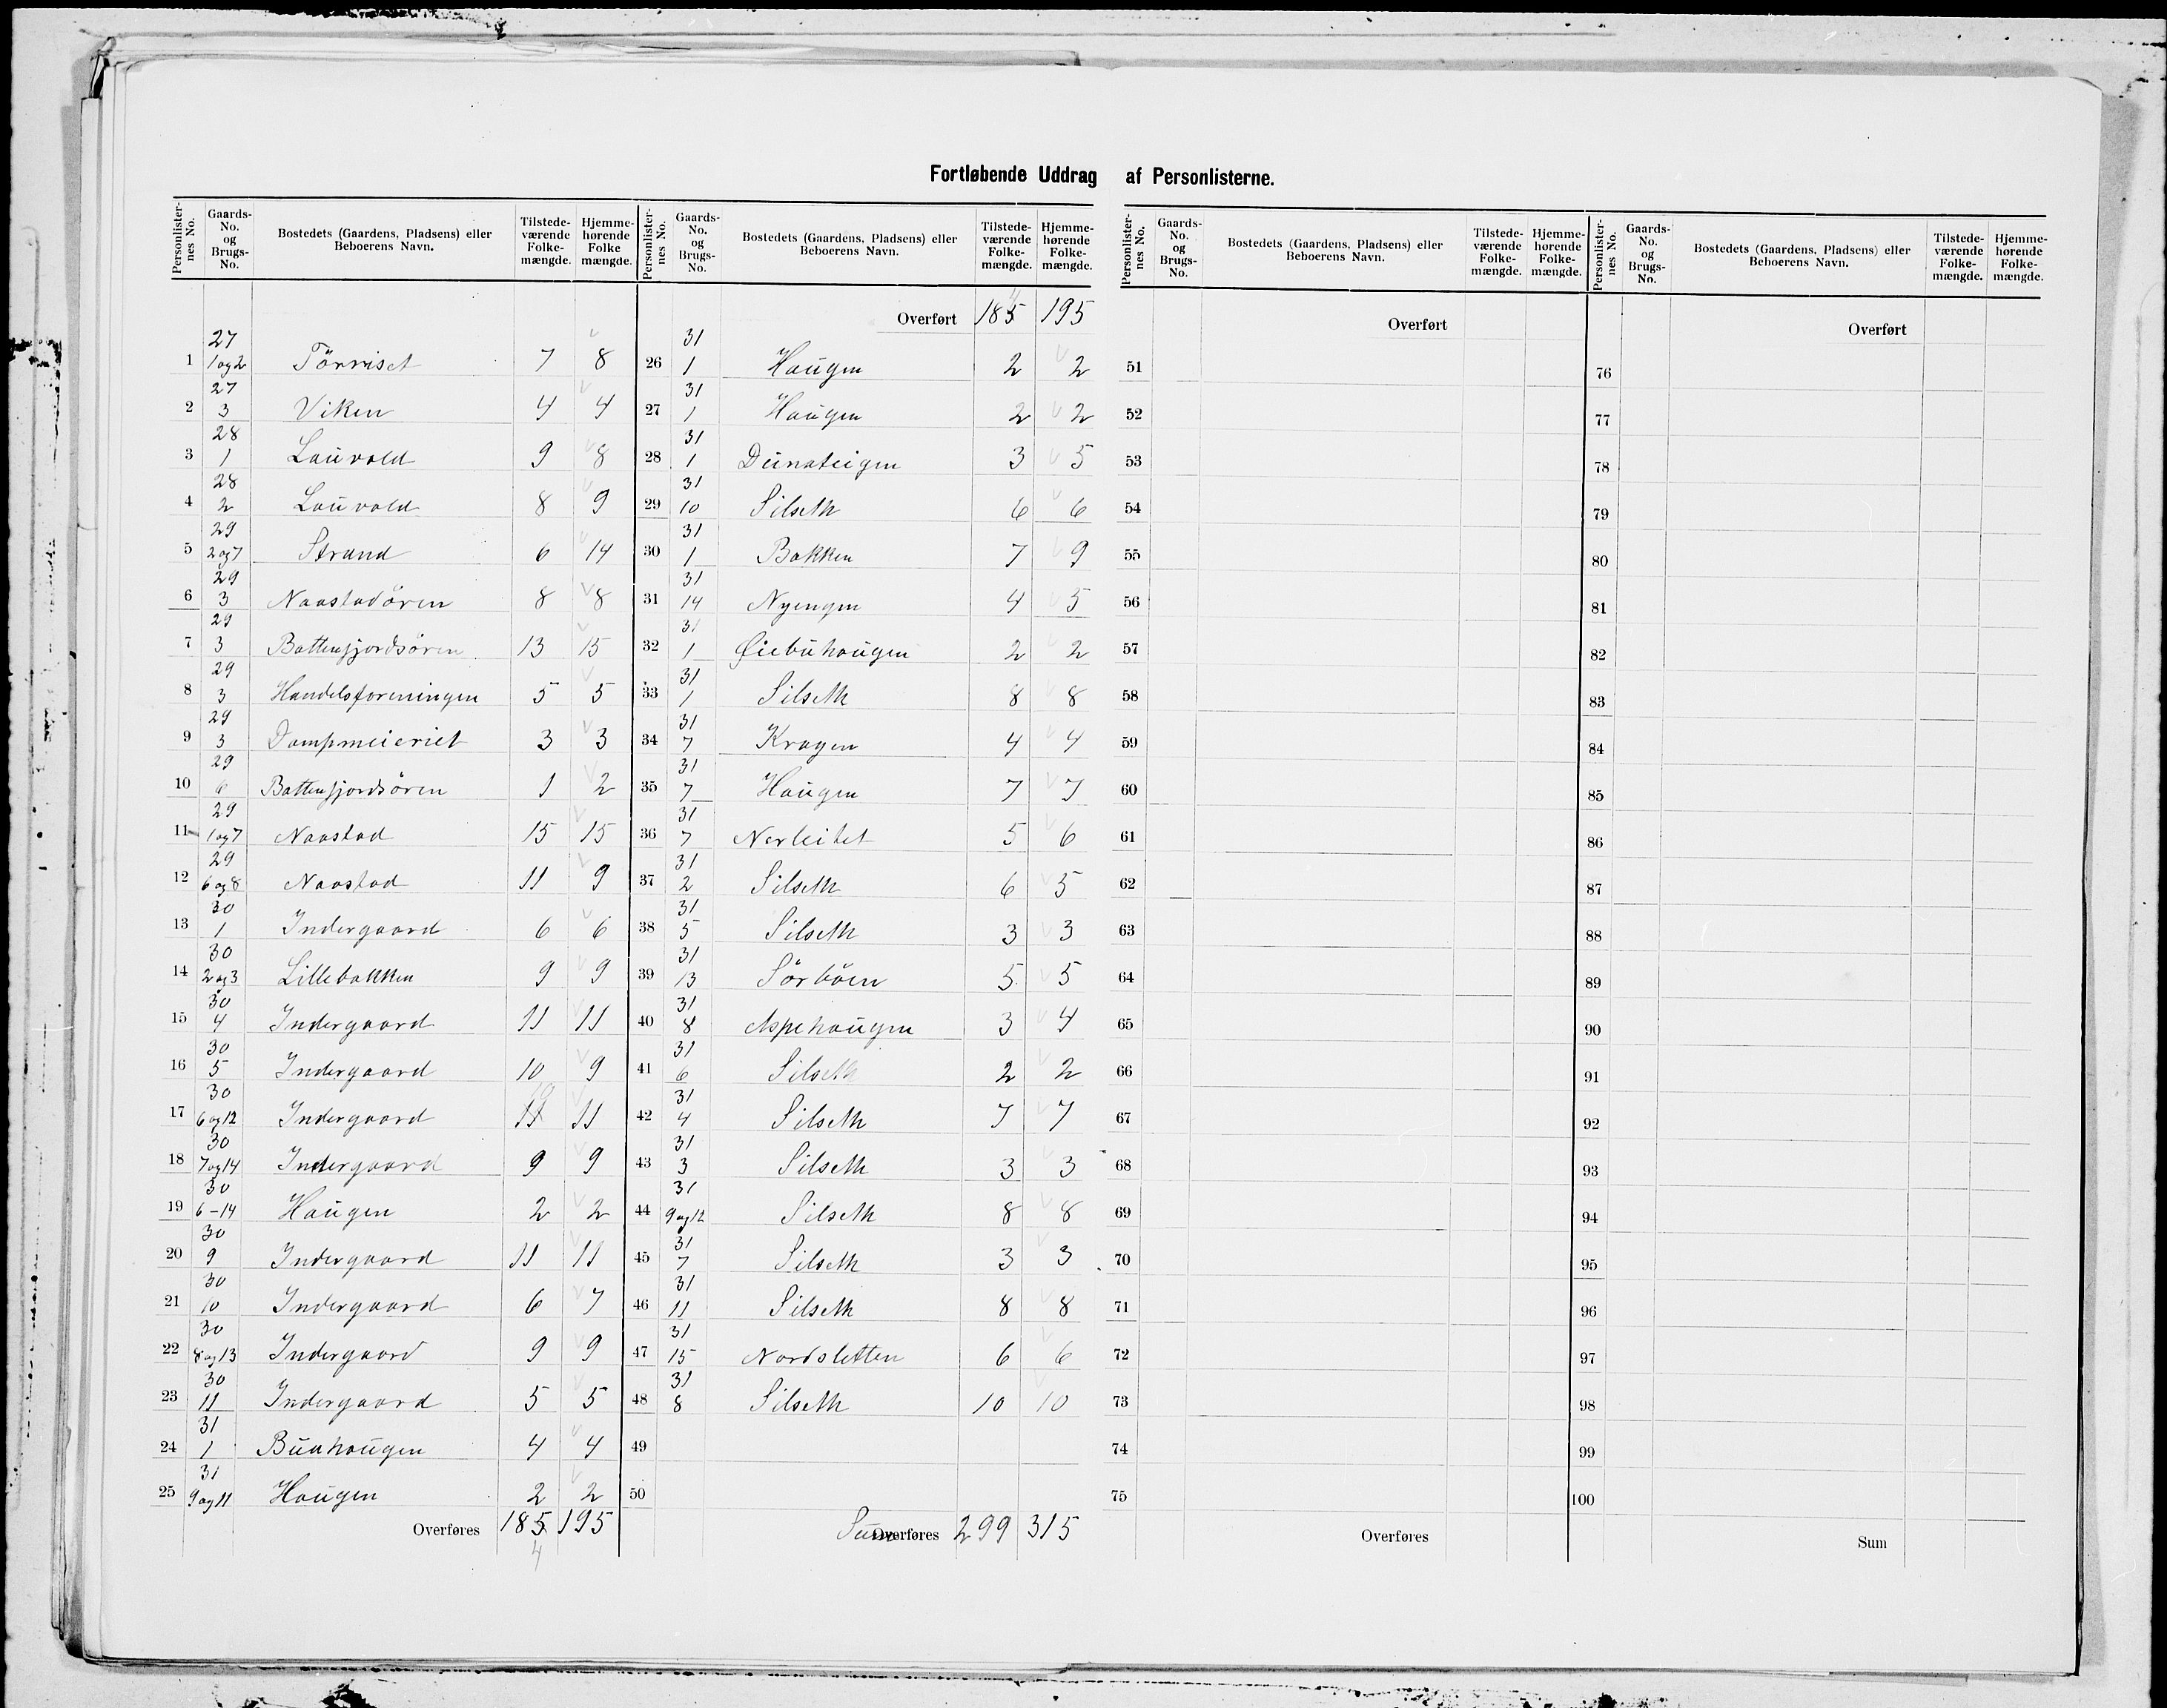 Fortløbende Uddrag af Personlisterne.
Personlister-nes No. | Gaards-No. og Brugs-No. | Bostedets (Gaardens, Pladsens) eller Beboerens Navn. | Tilstede-værende Folke-mængde. | Hjemme-hørende Folke mængde.
1 | 27 1 og 2 | Törriset | 7 | 8
2 | 27 3 | Viken | 4 | 4
3 | 28 1 | Lauvold | 9 | 8
4 | 28 2 | Lauvold | 8 | 9
5 | 29 2 og 7 | Strand | 6 | 14
6 | 29 3 | Naastadören | 8 | 8
7 | 29 3 | Battenfjordsören | 13 | 15
8 | 29 3 | Handelsforeningen | 5 | 5
9 | 29 3 | Dampmeieriet | 3 | 3
10 | 29 6 | Battenfjordsören | 1 | 2
11 | 29 1 og 7 | Naastad | 15 | 15
12 | 29 6 og 8 | Naastad | 11 | 9
13 | 30 1 | Indergaard | 6 | 6
14 | 30 2 og 3 | Lillebakken | 9 | 9
15 | 30 4 | Indergaard | 11 | 11
16 | 30 5 | Indergaard | 10 | 9
17 | 30 6 og 12 | Indergaard | 11 10 | 11
18 | 30 7 og 14 | Indergaard | 9 | 9
19 | 30 6-14 | Haugen | 2 | 2
20 | 30 9 | Indergaard | 11 | 11
21 | 30 10 | Indergaard | 6 | 7
22 | 30 8 og 13 | Indergaard | 9 | 9
23 | 30 11 | Indergaard | 5 | 5
24 | 31 1 | Buahaugen | 4 | 4
25 | 31 9 og 11 | Haugen | 2 | 2
Overføres | 185 4 | 195
Personlister-nes No. | Gaards-No. og Brugs-No. | Bostedets (Gaardens, Pladsens) eller Beboerens Navn. | Tilstede-værende Folke-mængde. | Hjemme-hørende Folke-mængde.
Overført | 185 4 | 195
26 | 31 1 | Haugen | 2 | 2
27 | 31 1 | Haugen | 2 | 2
28 | 31 1 | Dunateigen | 3 | 5
29 | 31 10 | Silseth | 6 | 6
30 | 31 1 | Bakken | 7 | 9
31 | 31 14 | Nyengen | 4 | 5
32 | 31 1 | Øiebuhaugen | 2 | 2
33 | 31 1 | Silseth | 8 | 8
34 | 31 7 | Kragen | 4 | 4
35 | 31 7 | Haugen | 7 | 7
36 | 31 7 | Nerleitet | 5 | 6
37 | 31 2 | Silseth | 6 | 5
38 | 31 5 | Silseth | 3 | 3
39 | 31 13 | Sörböen | 5 | 5
40 | 31 8 | Aspehaugen | 3 | 4
41 | 31 6 | Silseth | 2 | 2
42 | 31 4 | Silseth | 7 | 7
43 | 31 3 | Silseth | 3 | 3
44 | 31 9 og 12 | Silseth | 8 | 8
45 | 31 7 | Silseth | 3 | 3
46 | 31 11 | Silseth | 8 | 8
47 | 31 15 | Nordsletten | 6 | 6
48 | 31 8 | Silseth | 10 | 10
49
50
Sum Overføres | 299 | 315
Personlister-nes No. | Gaards-No. og Brugs-No. | Bostedets (Gaardens, Pladsens) eller Beboerens Navn. | Tilstede-værende Folke-mængde. | Hjemme-hørende Folke-mængde.
Overført
51
52
53
54
55
56
57
58
59
60
61
62
63
64
65
66
67
68
69
70
71
72
73
74
75
Overføres
Personlister-nes No. | Gaards-No. og Brugs-No. | Bostedets (Gaardens, Pladsens) eller Beboerens Navn. | Tilstede-værende Folke-mængde. | Hjemme-hørende Folke-mængde.
Overført
76
77
78
79
80
81
82
83
84
85
86
87
88
89
90
91
92
93
94
95
96
97
98
99
100
Sum